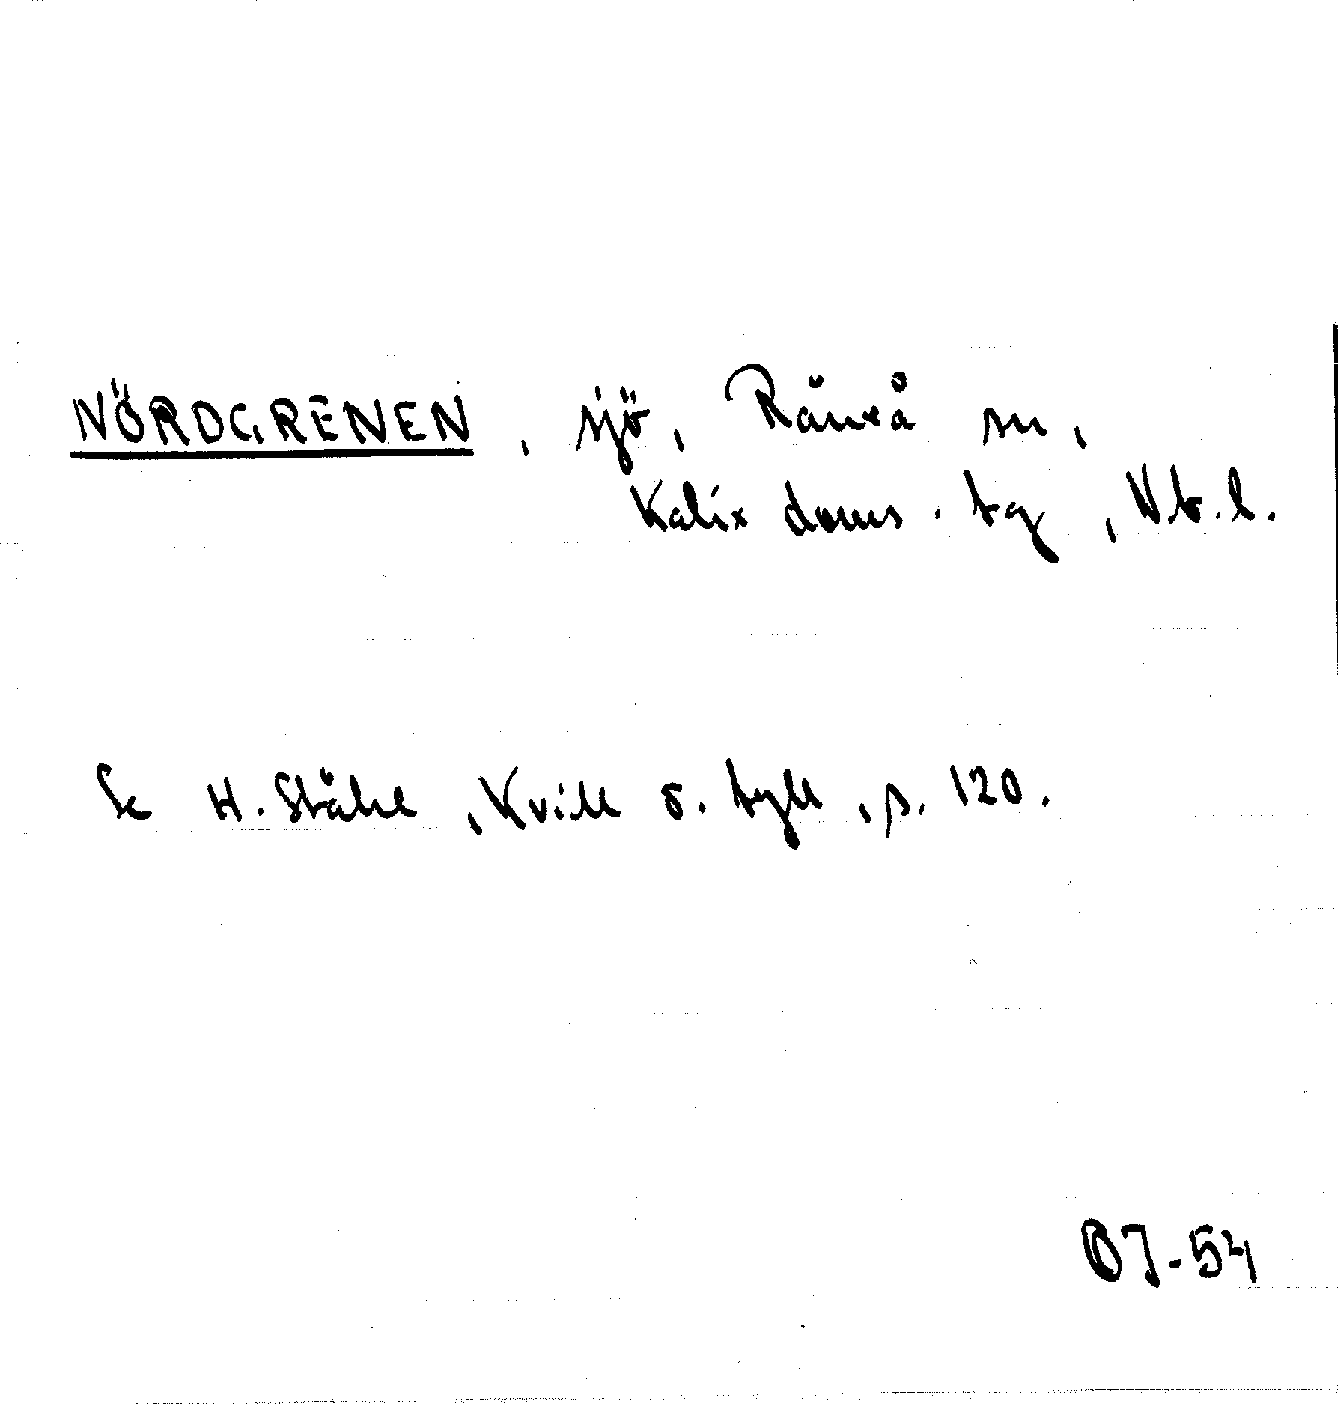 NÖRDGRENEN, sjö, Råneå sn,
Kalix doms. tg, Nb.l.
Se H. Ståhl, Kvill o. tyll, s. 120.
OJ-54